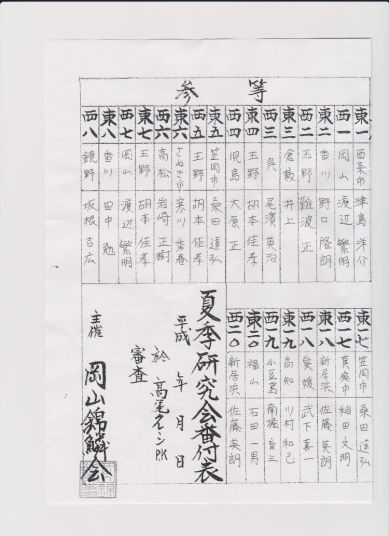 参等
東一 西条市 津島洋介
西一 岡山 渡辺繁明
東二 香川 野口隆朗
西二 玉野 難波正
東三 倉敷 井上
西三 呉 尾濱英治
東四 玉野 胡本佳孝
西四 児島 大原正
東五 笠岡市 桑田達弘
西五 玉野 胡本佳孝
東六 さぬき市 寒川
西六 高松 岩崎正樹
東七 玉野 胡本佳孝
西七 岡山 渡辺繁明
東八 香川 田中勉
西八 鏡野 坂根吉広
東一七 笠岡市 桑田達弘
西一七 真庭市 稲田文明
東一八 新居浜 佐藤英朗
西一八 愛媛 武下喜一
東一九 高知 川村和己
西一九 小豆島 南堀育三
東二0 福山 石田一男
西二0 新居浜 佐藤英朗
夏季研究会番付表
平成 年 月 日
於 高尾クイーンPK
審査
主催 岡山錦鱗会